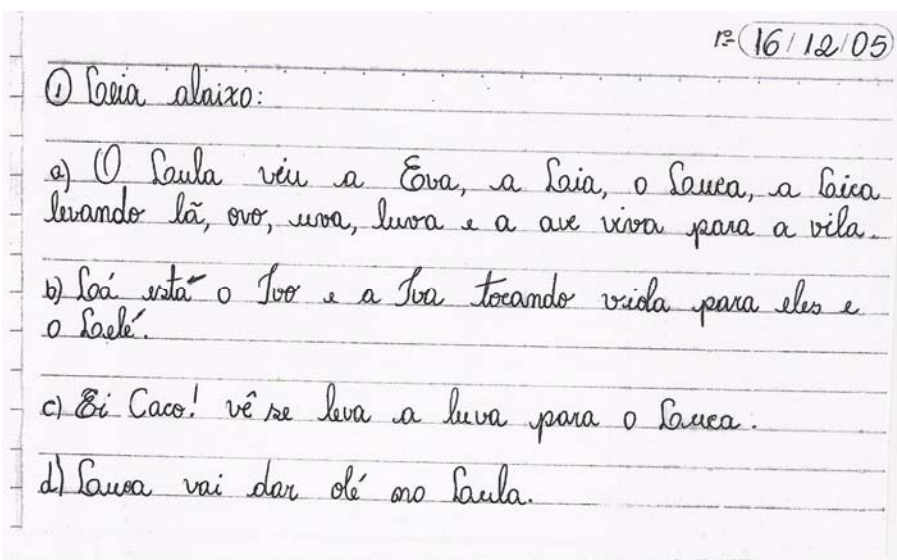 1º 16/12/05
① Leia abaixo:
a) O Laula viu a Eva, a Laia, o Lauca, a Laica
levando lã, ovo, uva, luva e a ave viva para a vila.
b) Lá está o Ivo e a Iva tocando viola para eles e
o Lelé.
c) Ei Caco! vê se leva a luva para o Lauca.
d) Lauca vai dar olé no Laula.